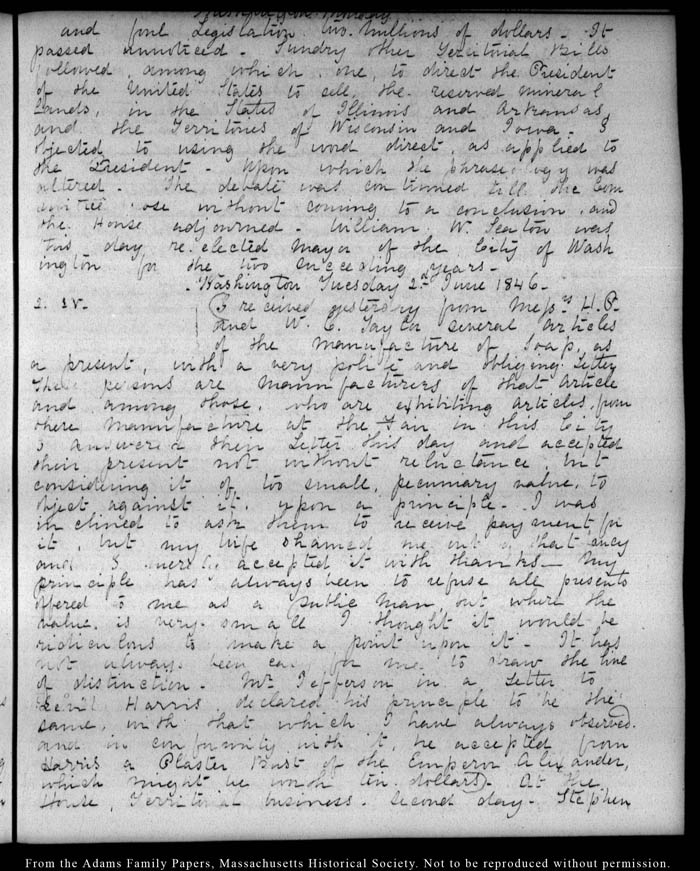 and foul Legislation two millions of dollars - It
passed unnoticed - Sundry other Territorial Bills
followed among which, one, to direct the President
of the United States to sell the reserved mineral
Lands, in the States of Illinois and Arkansas,
and the Territories of Wisconsin and Iowa - I
objected to using the word direct, as applied to
the President - Upon which the phraseology was
altered - The debate was continued till the Com
mittee rose without coming to a conclusion, and
the House adjourned - William W. Seaton was
this day re.elected Mayor of the City of Wash
ington for the two succeeding years -
Washington Tuesday 2d June 1846 -
2. IV. I received yesterday from Messrs H. P.
and W. C. Taylor several articles
of the manufacture of Soap, as
a present, with a very polite and obliging Letter
These persons are Manufacturers of that article
and among those, who are exhibiting articles from
their manufacture at the Fair in this City
I answered their Letter this day and accepted
their present not without reluctance, but
considering it of too small, pecuniary value, to
object against it, upon a principle - I was
inclined to ask them to receive payment for
it, but my wife shamed me out of that fancy
and I merely accepted it with thanks - My
principle has always been to refuse all presents
offered to me as a public man but where the
value, is very small I thought it would be
ridiculous to make a point upon it - It has
not always been easy for me to draw the line
of distinction - Mr Jefferson in a Letter to
Levitt Harris, declared his principle to be the
same, with that which I have always observed.
and in conformity with it, he accepted from
Harris a Plaster Bust of the Emperor Alexander,
which might be worth ten dollars) - At the
House, Territorial business - second day - Stephen
From the Adams Family Papers, Massachusetts Historical Society. Not to be reproduced without permission.